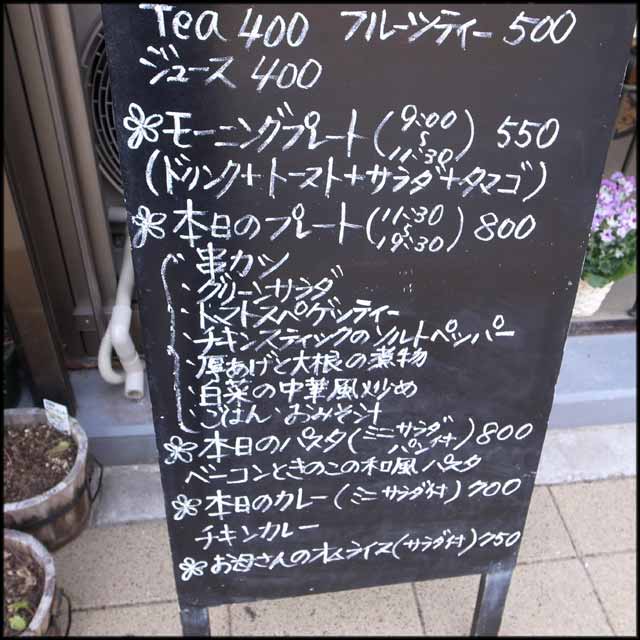 Tea 400 フルーツティー 500
ジュース 400
モーニングプレート (9:00〜11:30) 550
(ドリンク+トースト+サラダ+タマゴ)
本日のプレート (11:30〜19:30) 800
・串カツ
・グリーンサラダ
・トマトスパゲッティー
・チキンスティックのソルトペッパー
・厚あげと大根の煮物
・白菜の中華風炒め
・ごはん・おみそ汁
本日のパスタ (ミニサラダ パン付) 800
ベーコンときのこの和風パスタ
本日のカレー (ミニサラダ付) 700
チキンカレー
お母さんのオムライス (サラダ付) 750